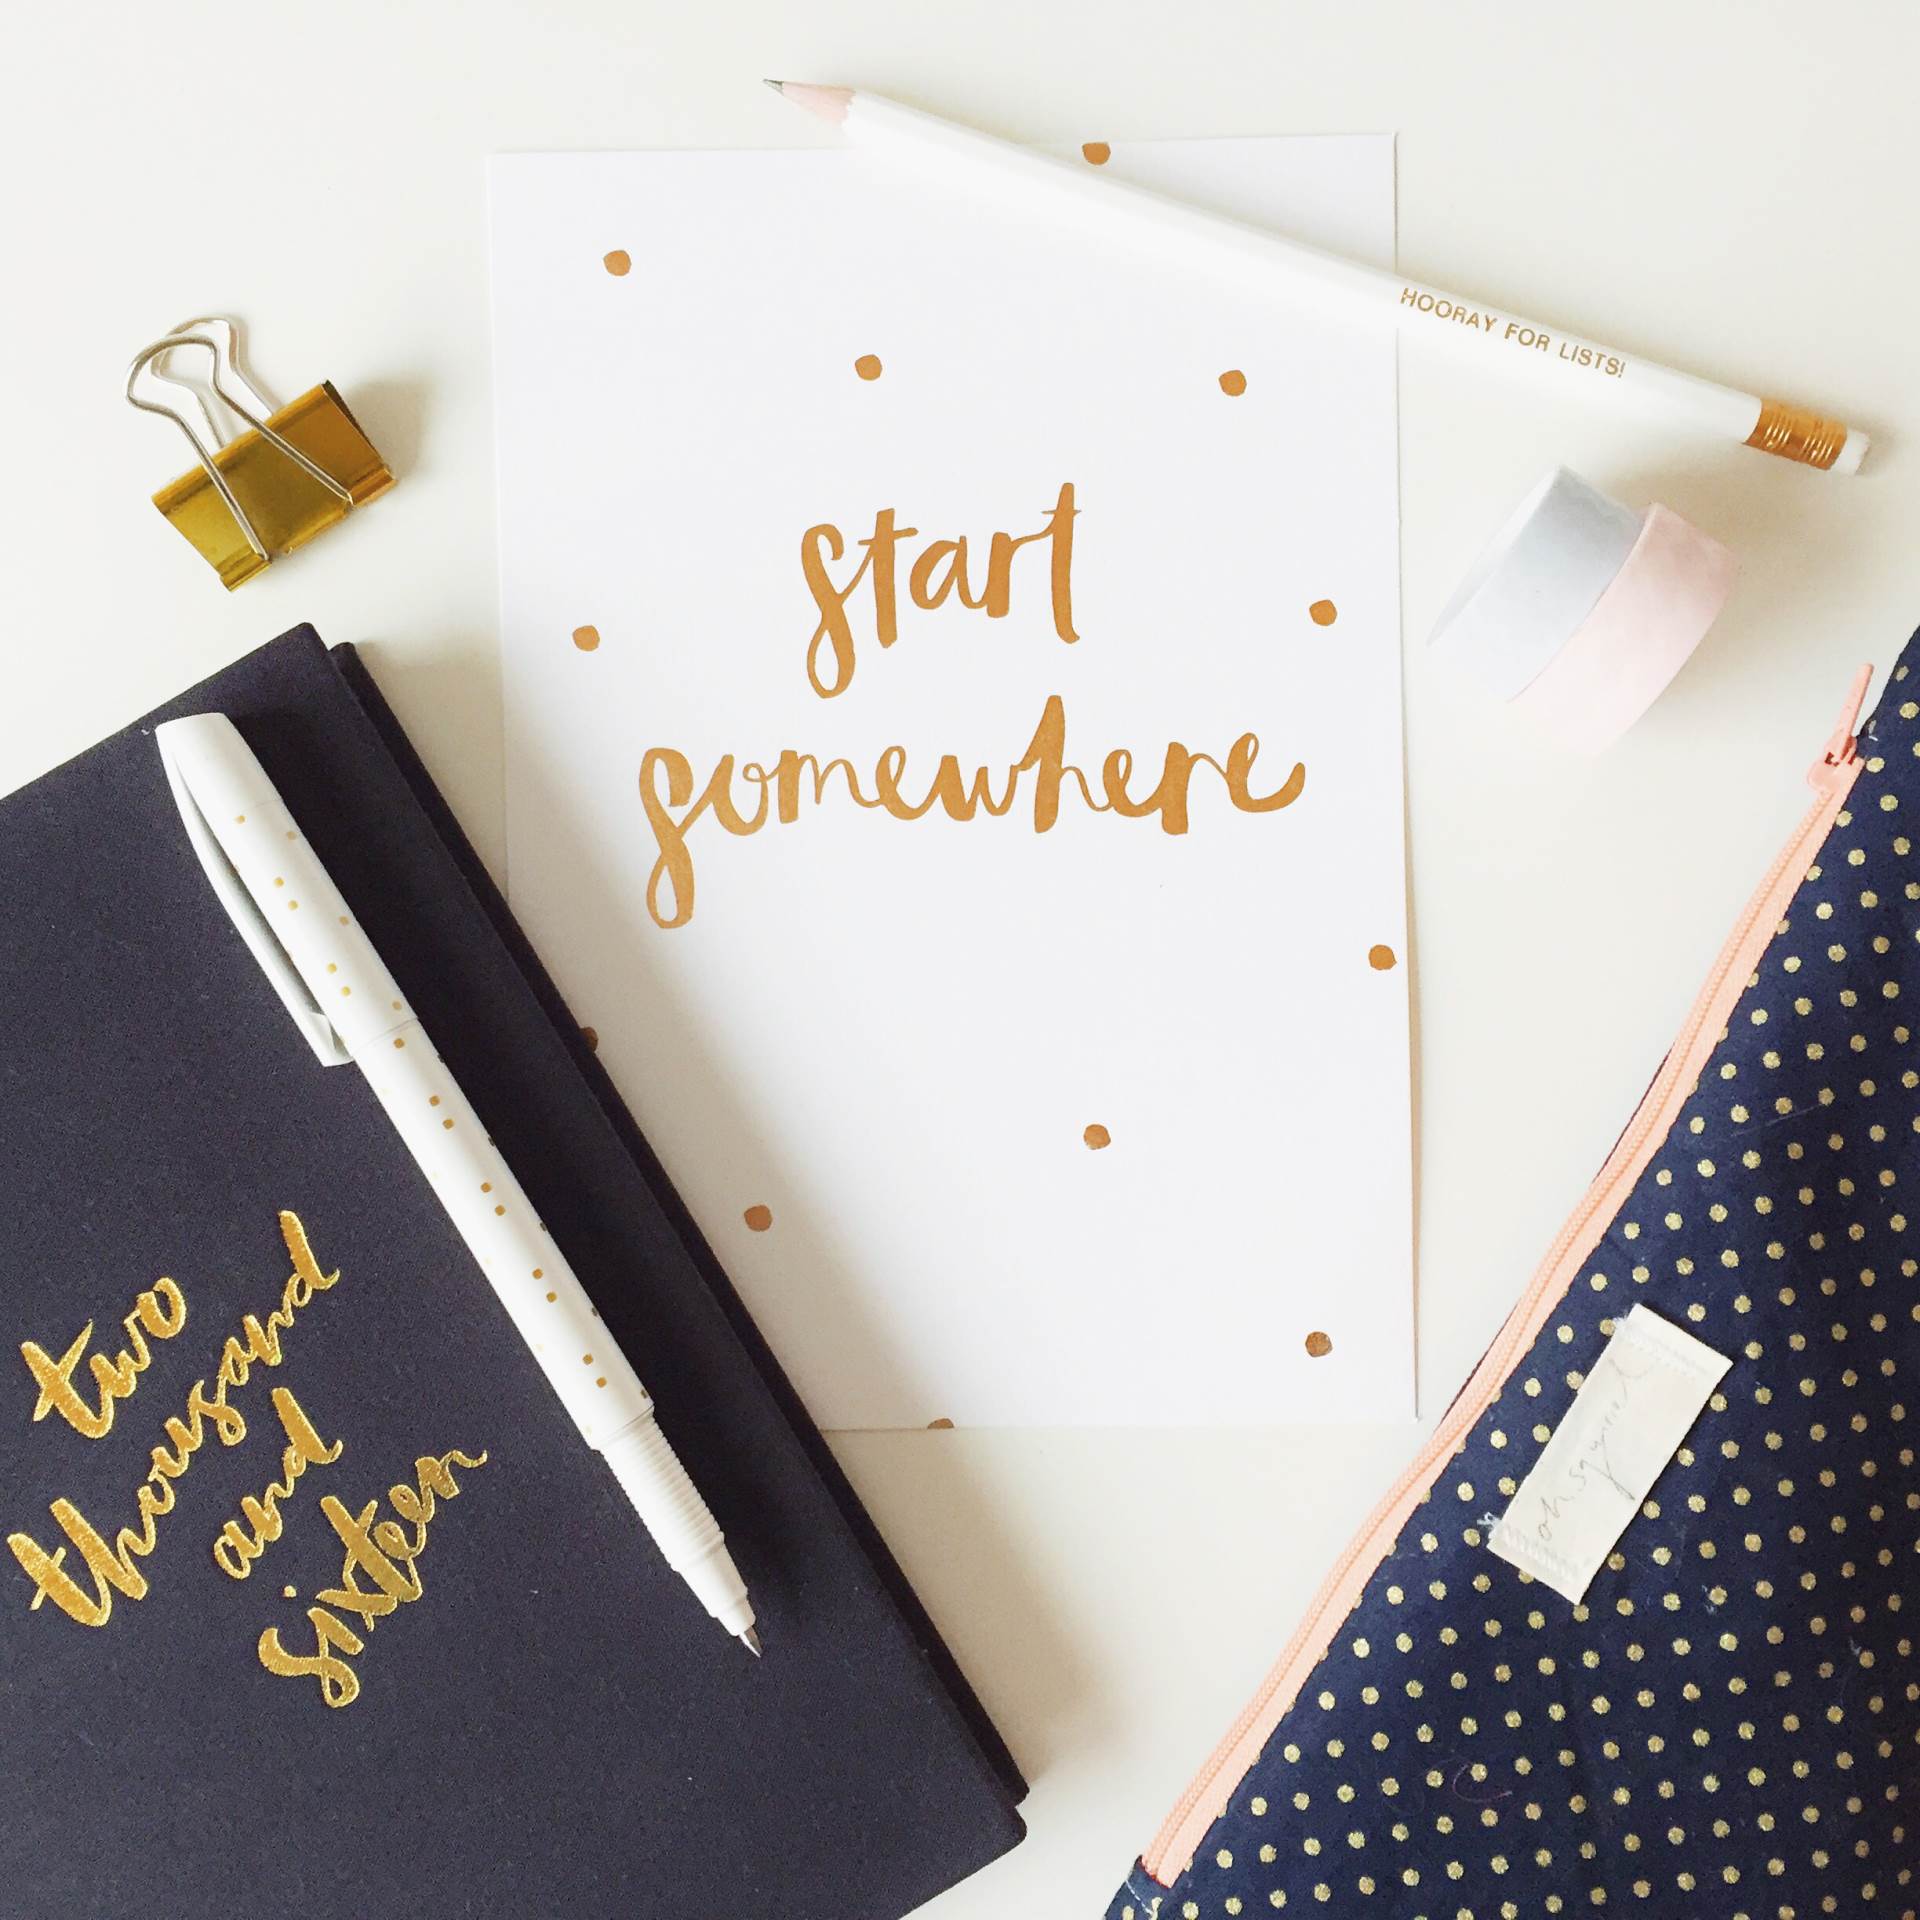 HOORAY FOR LISTS!
start
somewhere
two
thousand
and
sixteen
oh, squirrel